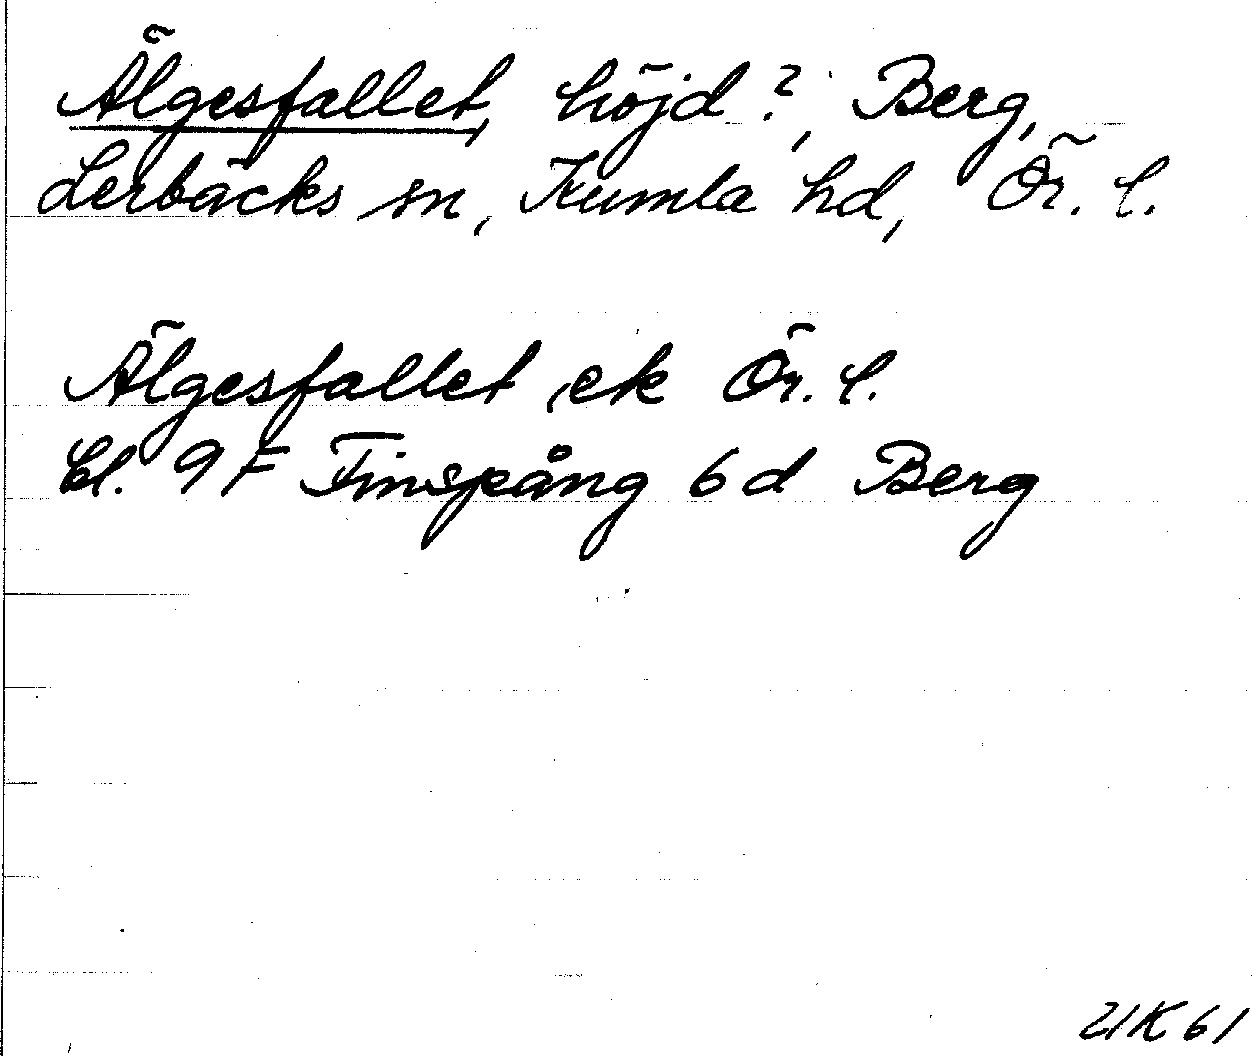 Älgesfallet, höjd?, Berg,
Lerbäcks sn, Kumla hd, Ör. l.
Älgesfallet ek Ör. l.
bl. 9F Finspång 6d Berg
21K61